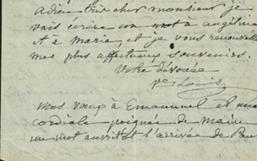 Adieu très cher monsieur je
vais écrire un mot à Angélina
et à Maria, et je vous renouvelle
mes plus affectueux souvenirs.
Votre dévouée
Vve Louise
Mes vœux à Emmanuel et une
cordiale poignée de main
un mot l'arrivée de